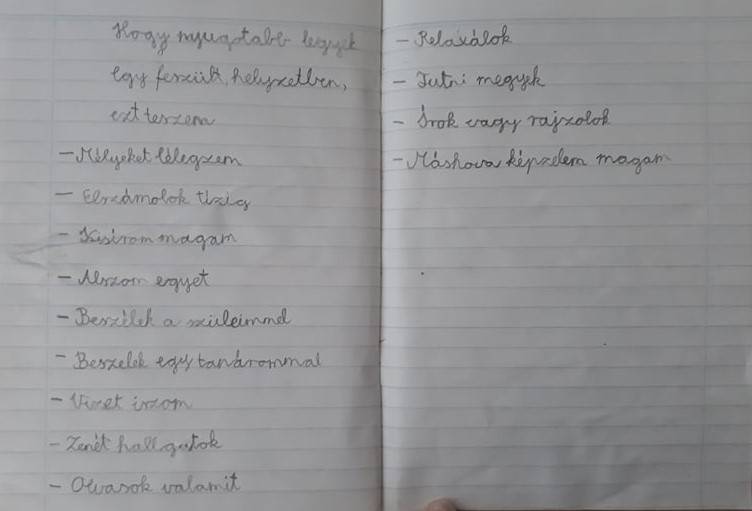 Hogy nyugotabb legyek
egy feszült, helyzetben,
ezt teszem
- Mélyeket lélegzem
- Elszámolok tízig
- Kisírom magam
- Alszom egyet
- Beszélek a szüleimmel
- Beszélek egy tanárommal
- Vizet iszom
- Zenét hallgatok
- Olvasok valamit
- Relaxálok
- Futni megyek
- Írok vagy rajzolok
- Máshova képzelem magam